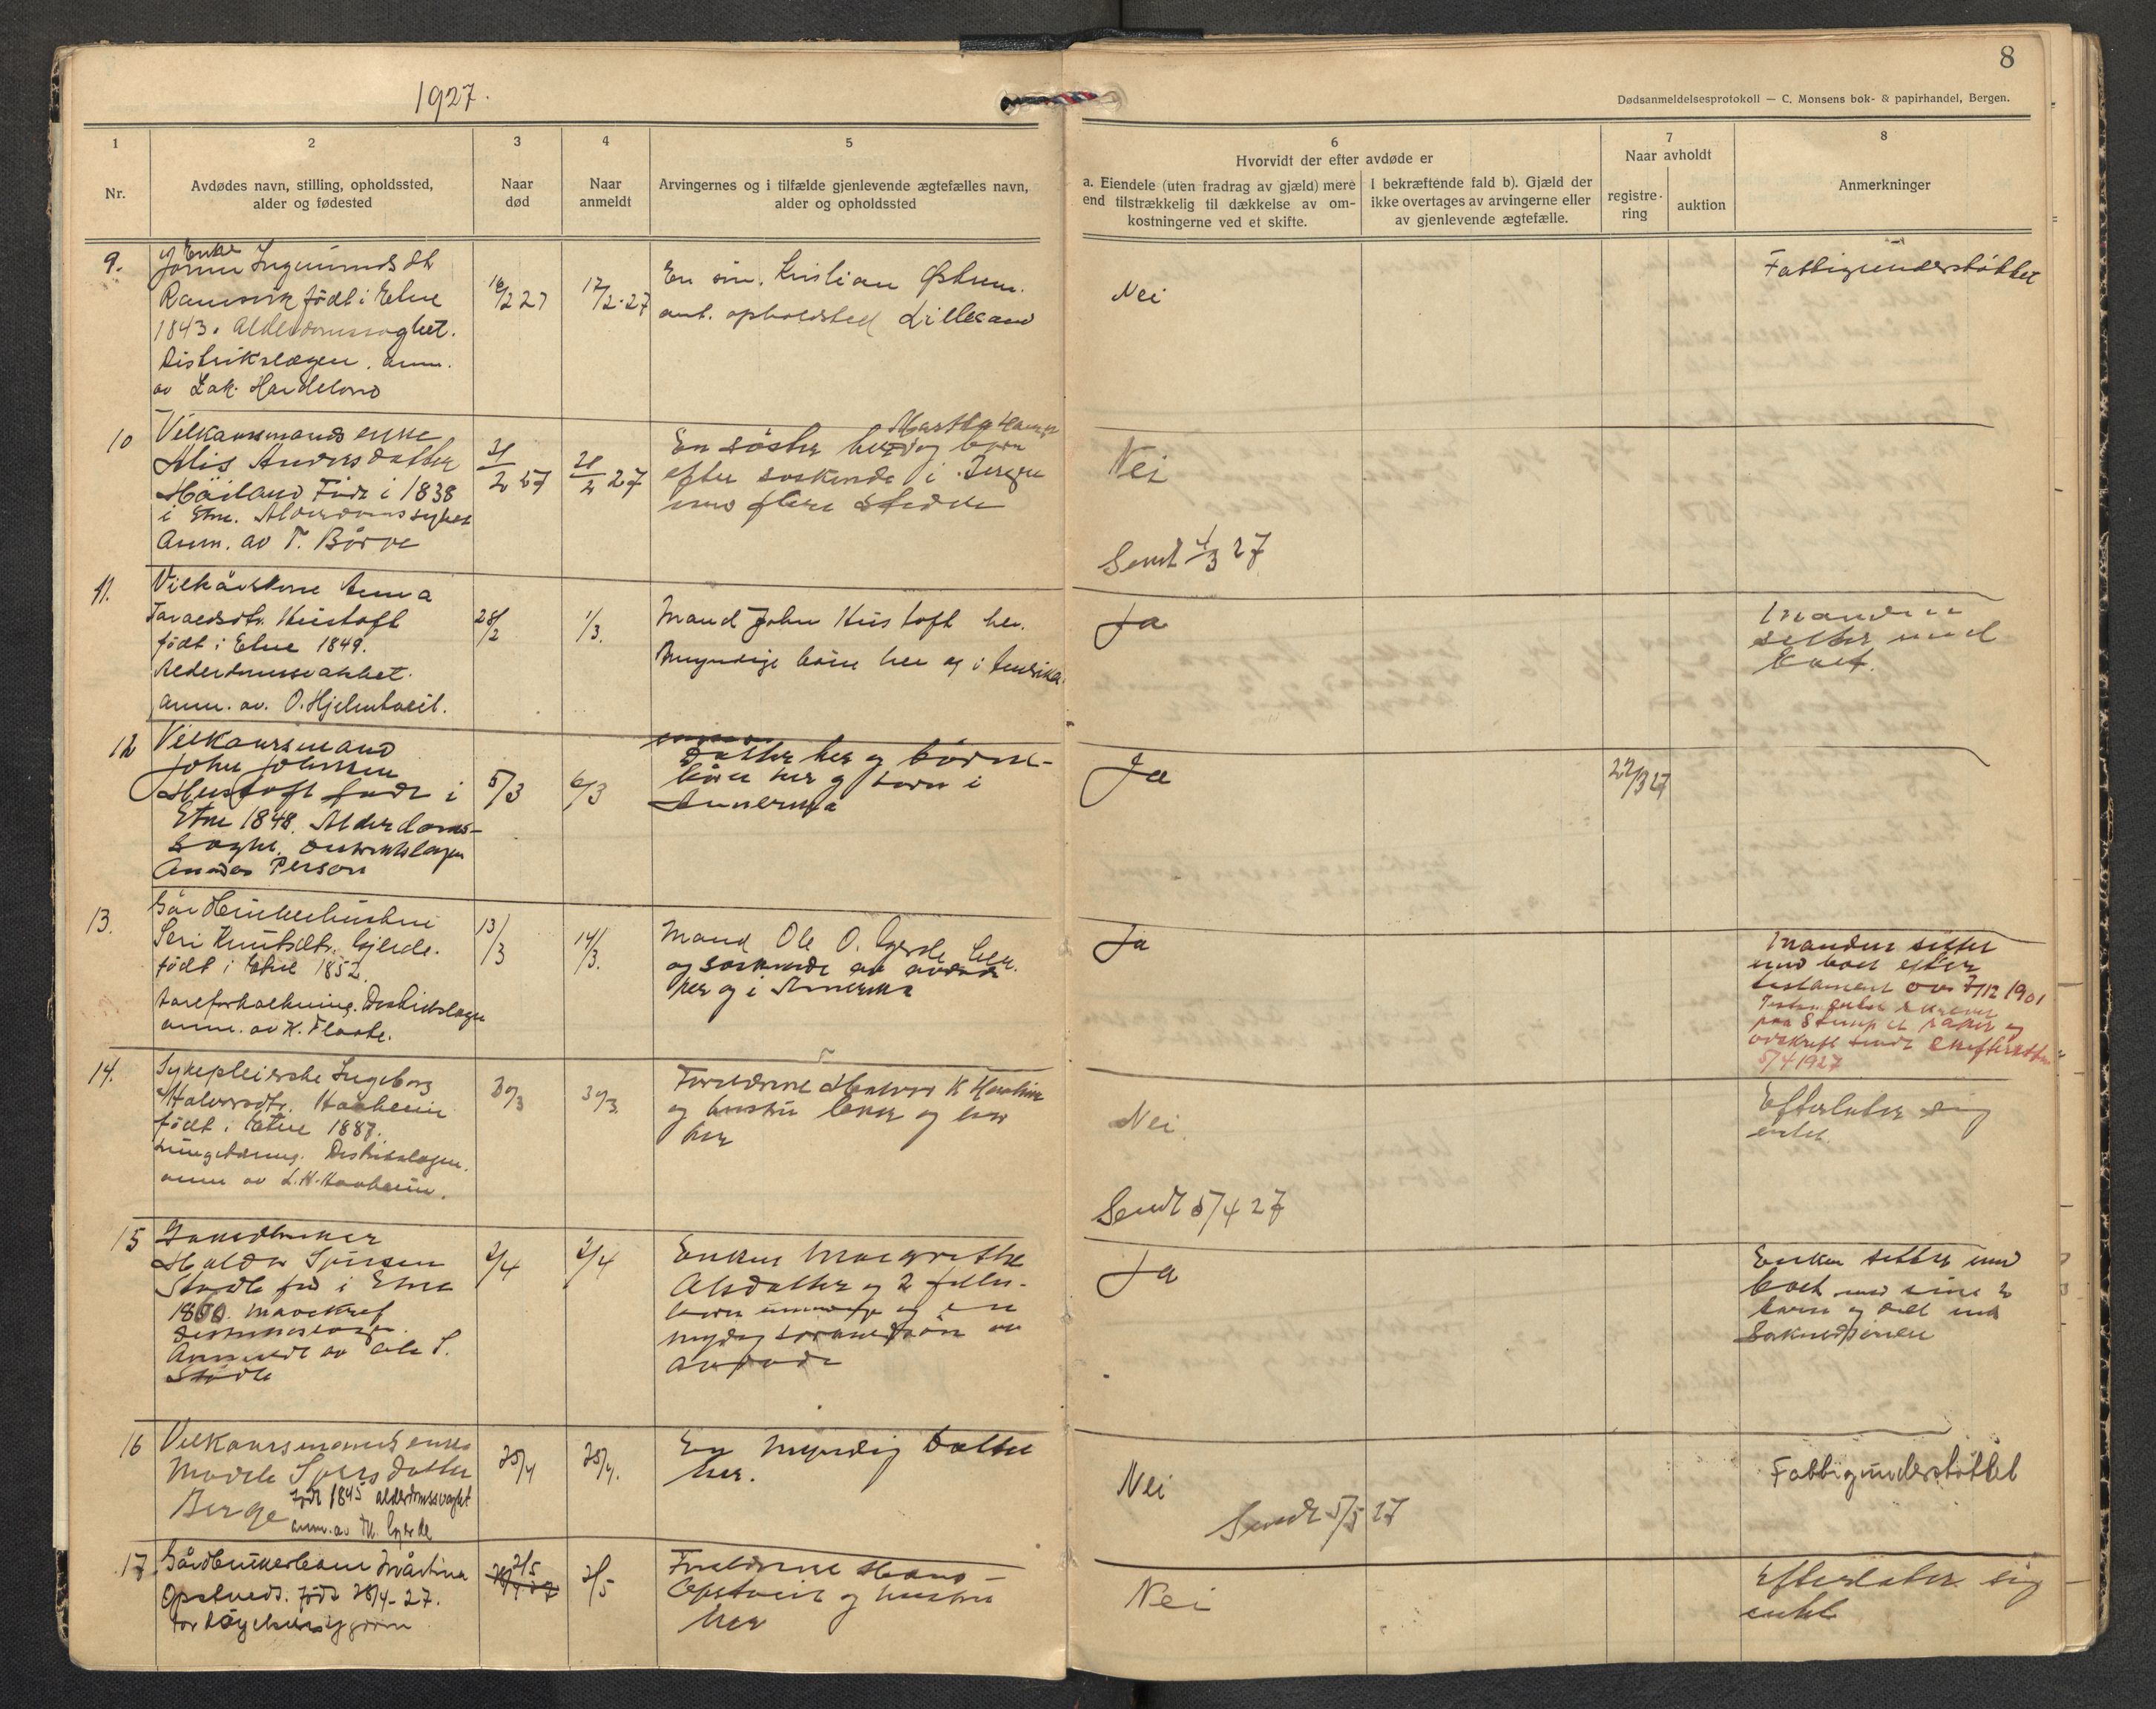 8
1927.
Dødsanmeldelsesprotokoll — C. Monsens bok- & papirhandel, Bergen.
1
Nr.
2
Avdødes navn, stilling, opholdssted,
alder og fødested
3
Naar
død
4
Naar
anmeldt
5
Arvingernes og i tilfælde gjenlevende ægtefælles navn,
alder og opholdssted
6
Hvorvidt der efter avdøde er
a. Eiendele (uten fradrag av gjæld) mere
end tilstrækkelig til dækkelse av om-
kostningerne ved et skifte.
I bekræftende fald b). Gjæld der
ikke overtages av arvingerne eller
av gjenlevende ægtefælle.
7
Naar avholdt
registre-
ring
auktion
8
Anmerkninger
9.
Enke
Ingemundsdt
Ramsvik født i Etne
1843. Alderdomssvaghet.
Distrikslægen. anm.
av Zak. Handeland
16/2 27
17/2-27
En søn. Kristian Østrem.
ant. opholdsted Lillesand
Nei
Fattigunderstøttet
10
Vilkaarsmands enke
Alis Andersdatter
Håiland Født i 1838
i Etne. Alderdomssyke
Anm. av T. Börve
21/2 27
21/2 27
En söster her og born
efter soskende i Bergen
flere steder
Nei
Sendt 4/3 27
11.
Vilkårskone Anna
Hustoft
født i Etne 1849.
Alderdomssvakhet.
anm. av. O. Hjelmtveit.
28/2
1/3.
Mand John Hustoft her.
Myndige børn her og i Amerika.
Ja
Manden
sitter med
boet.
12
Vilkaarsmand
John Johnsen
Hustoft født i
Etne 1848. Alderdoms-
Distriktslægen
Person
5/3
6/3
Datter her og børne-
børn her og børn i
Amerika
Ja
22/3 27
13.
Gårdbrukerhustru
Seri Knutsdtr. Gjerde.
født i Etne 1852.
Aareforkalkning. Distrikslægen
anm. av K. Flaate.
13/3
14/3.
Mand Ole O. Gjerde her.
og soskende av avdøde
her og i Amerika
Ja
Manden sitter
med boet efter
testament av 7/12 1901
paa Stempel papir og
avskrift sendt Skifteretten
5/4 1927
14.
Sykepleierske Ingeborg
Halvorsdtr. Haaheim
født i Etne 1887.
Lungetæring. Distrikslægen.
anm av L. H. Haaheim.
30/3
30/3
Forældrene Halvor K Haaheim
og hustru
her
Nei.
Sendt 5/4 27
Efterlater sig
intet
15
Gaardbruker
Haldor Sjursen
Stødle fød i Etne
1860. Mavekreft
Distriktslægen.
Anmeldt av Ole S.
Stødle
2/4
2/4
Enken Margrethe
Olsdatter og 2 felles-
børn umyndige og en
myndig særkuldsøn av
avdøde
Ja
Enken sitter med
boet med sine 2
barn og delt med
16
Vilkaarsmands enke
Marta Sjursdatter
Berge født 1845 alderdomssvaghet
anm. av M. Gjerde
25/4
25/4.
En myndig Datter
her.
Nei
Sendt 5/5 27
Fattigunderstøttet
17
Gårdbrukerbarn Martina
Opstveit. født 28/4-27.
2/5
2/5
Forældrene Hans
Opstveit og hustru
her
Nei
Efterlater sig
intet